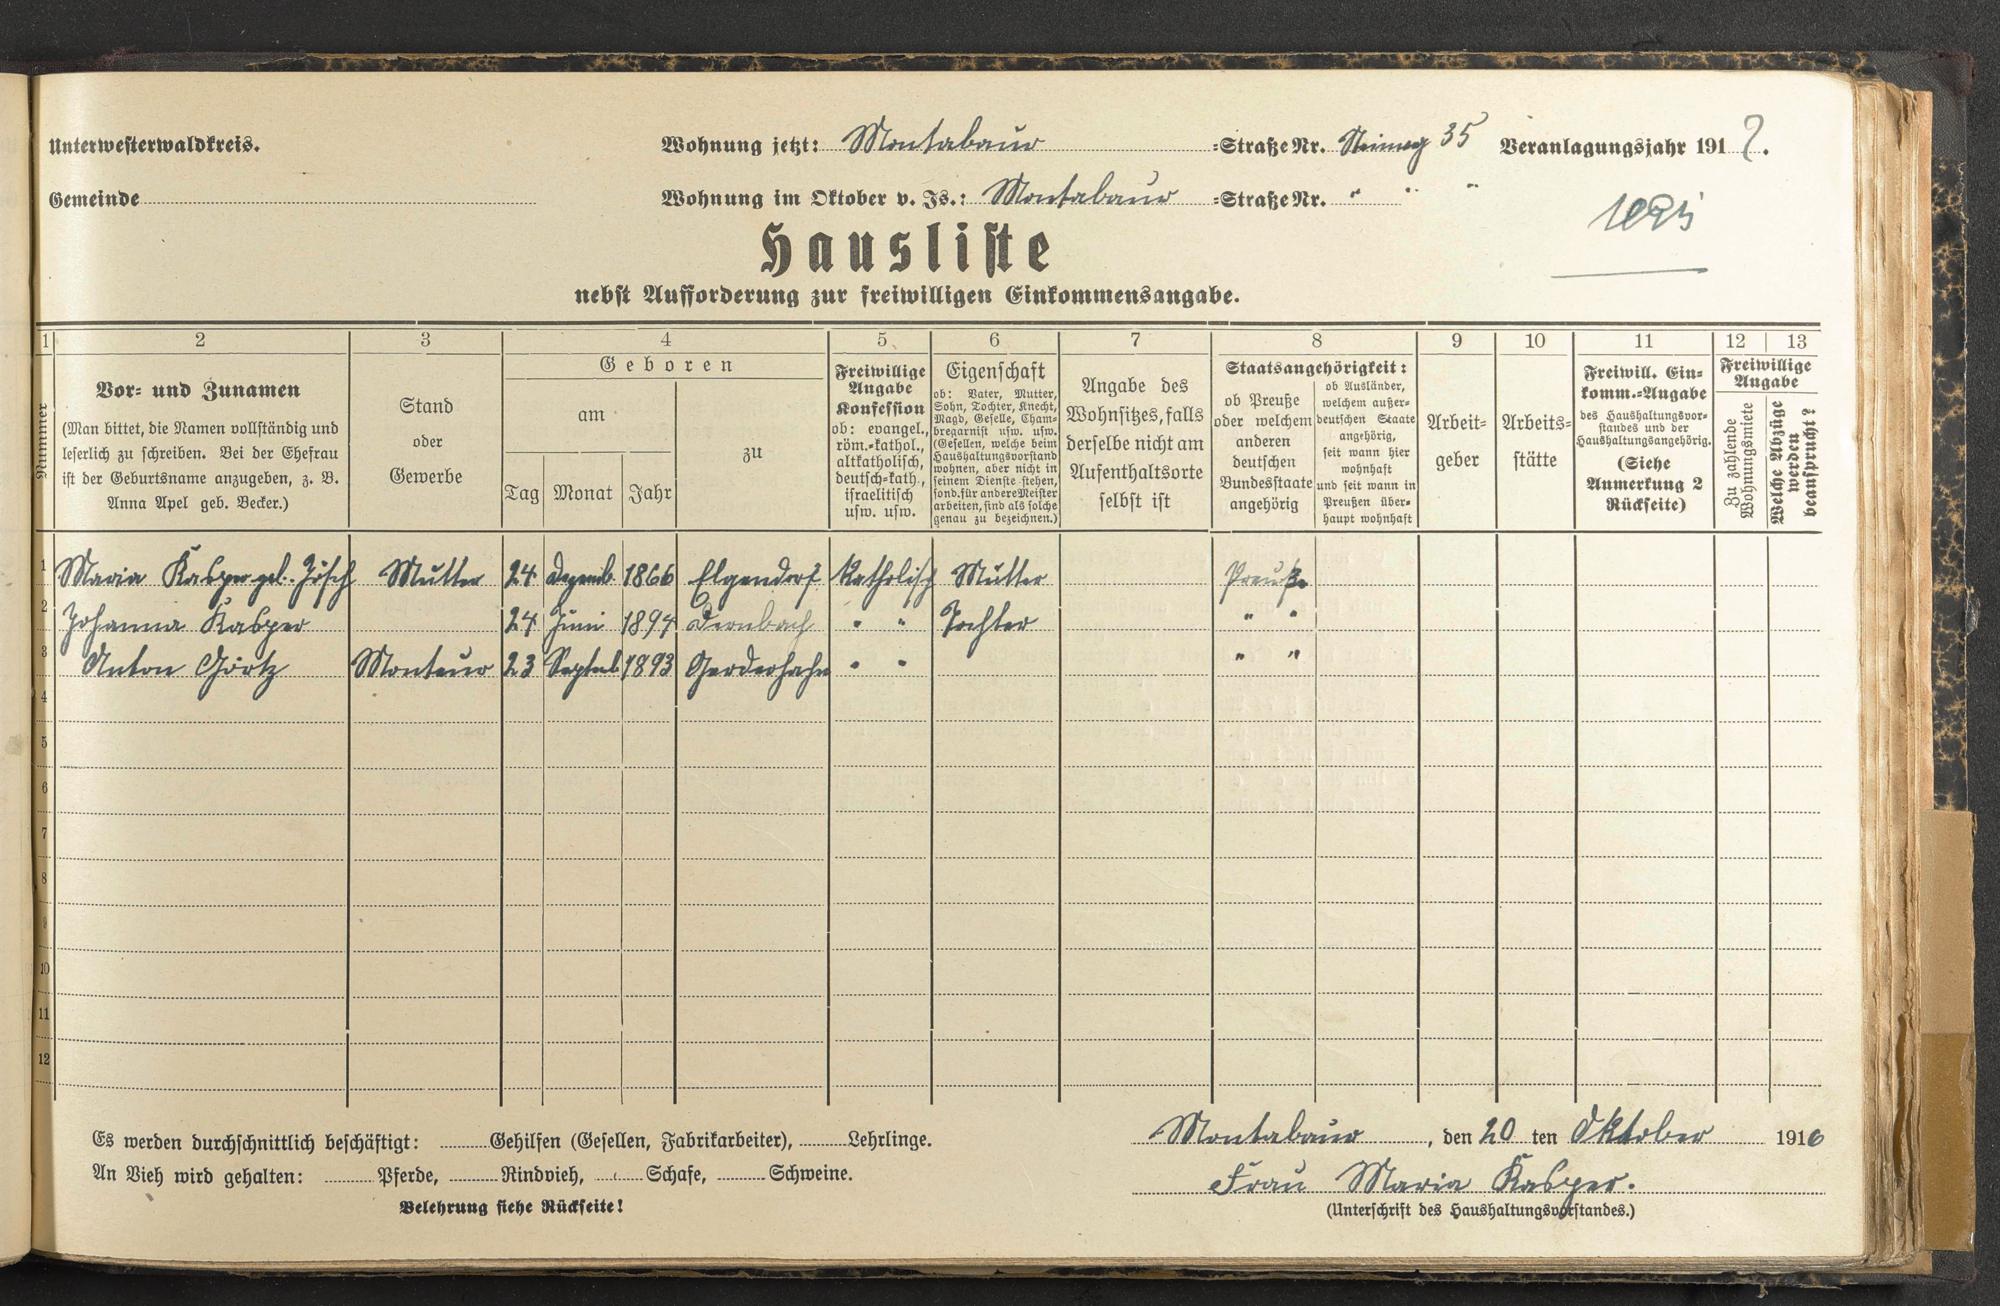 Unterwesterwaldkreis. Wohnung jetzt: Montabaur =Straße Nr. Steinweg 35 Veranlagungsjahr 1917.
Gemeinde Wohnung im Oktober v. Js.: Montabaur =Straße Nr. " " "
Hausliste
nebst Aufforderung zur freiwilligen Einkommensangabe.
1 2 3 4 5 6 7 8 9 10 11 12 13
Nummer
Vor= und Zunamen
(Man bittet, die Namen vollständig und
leserlich zu schreiben. Bei der Ehefrau
ist der Geburtsname anzugeben, z. B.
Anna Apel geb. Becker.)
Stand
oder
Gewerbe
Geboren
am
Tag Monat Jahr
zu
Freiwillige
Angabe
Konfession
ob: evangel.,
röm.=kathol.,
altkatholisch,
deutsch=kath.,
israelitisch
usw. usw.
Eigenschaft
ob: Vater, Mutter,
Sohn, Tochter, Knecht,
Magd, Geselle, Cham=
bregarnist usw. usw.
(Gesellen, welche beim
Haushaltungsvorstand
wohnen, aber nicht in
seinem Dienste stehen,
sond. für andere Meister
arbeiten, sind als solche
genau zu bezeichnen.)
Angabe des
Wohnsitzes, falls
derselbe nicht am
Aufenthaltsorte
selbst ist
Staatsangehörigkeit:
ob Preuße
oder welchem
anderen
deutschen
Bundesstaate
angehörig
ob Ausländer,
welchem außer=
deutschen Staate
angehörig,
seit wann hier
wohnhaft
und seit wann in
Preußen über=
haupt wohnhaft
Arbeit=
geber
Arbeits=
stätte
Freiwill. Ein=
komm.=Angabe
des Haushaltungsvor=
standes und der
Haushaltungsangehörig.
(Siehe
Anmerkung 2
Rückseite)
Freiwillige
Angabe
Zu zahlende
Wohnungsmiete
Welche Abzüge
werden
beansprucht?
1 Maria Kasper geb. Jösch Mutter 24 Dezemb. 1866 Elgendorf Katholisch Mutter Preuße
2 Johanna Kasper 24 Juni 1894 Dernbach " " Tochter " "
3 Anton Görtz Monteur 23 Septemb 1893 Gerderhahn " " " "
4
5
6
7
8
9
10
11
12
Es werden durchschnittlich beschäftigt: Gehilfen (Gesellen, Fabrikarbeiter), Lehrlinge.
An Vieh wird gehalten: Pferde, Rindvieh, Schafe, Schweine.
Belehrung siehe Rückseite!
Montabaur, den 20 ten Oktober 1916
Frau Maria Kasper.
(Unterschrift des Haushaltungsvorstandes.)